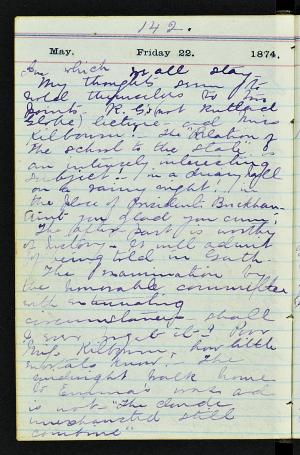 142.
May. Friday 22. 1874.
In which we all stay
My thoughts seem to
hold themselves to two
points. R. G. (not Rutland
Globe) lecture and Miss
Kilbourne. The "Relation of
the school to the State" is
an intensely interesting
subject! in a dreary hall
on a rainy night! in
the place of President Buckham.
Aint you glad you come?
The after part is worthy
of history. It will admit
of being told in Gath.
The examination by
the honorable committee
with extenuating
circumstances shall
I ever forget it? Poor
Miss Kilbourne, how little
mortals know. The
midnight walk home
to Emma's was and
is not. "The clouds
unexhausted still
continue"